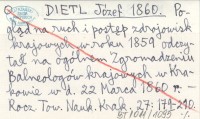 DIETL Józef 1860. Po-
gląd na ruch i postęp zdrojowisk
krajowych w roku 1859 odczy-
tał na ogólnem Zgromadzeniu
Balneologów krajowych w Kra-
kowie w d. 22 Marca 1860 r.-
Rocz. Tow. Nauk. Krak. 27: 179-210.